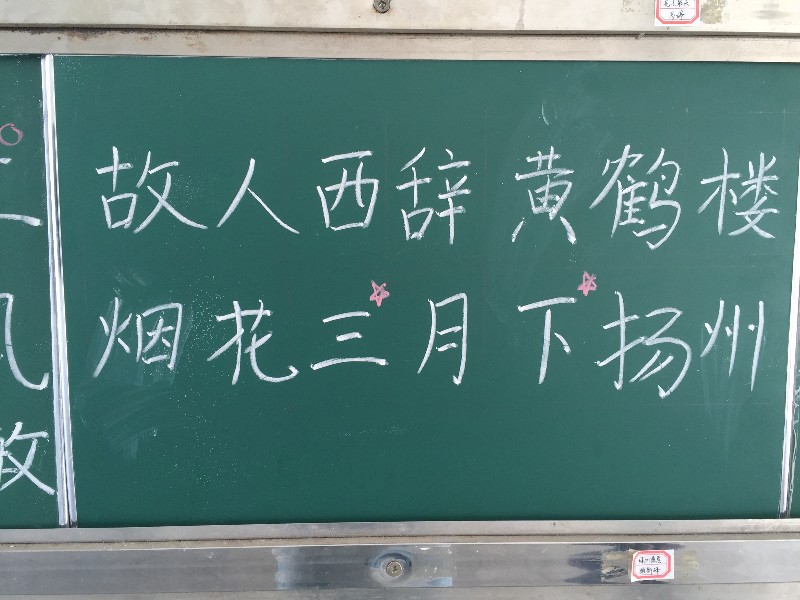 故人西辞黄鹤楼
烟花三月下扬州